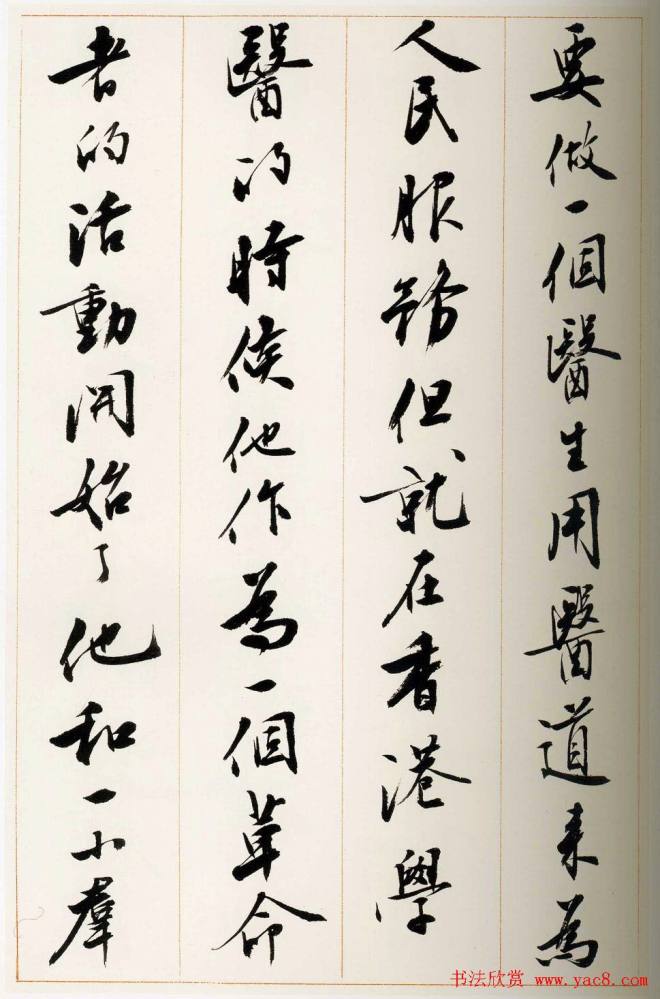 要做一個醫生用醫道来為
人民服務但就在香港學
醫的時候他作為一個革命
者的活動開始了他和一小羣
书法欣赏 www.yac8.com